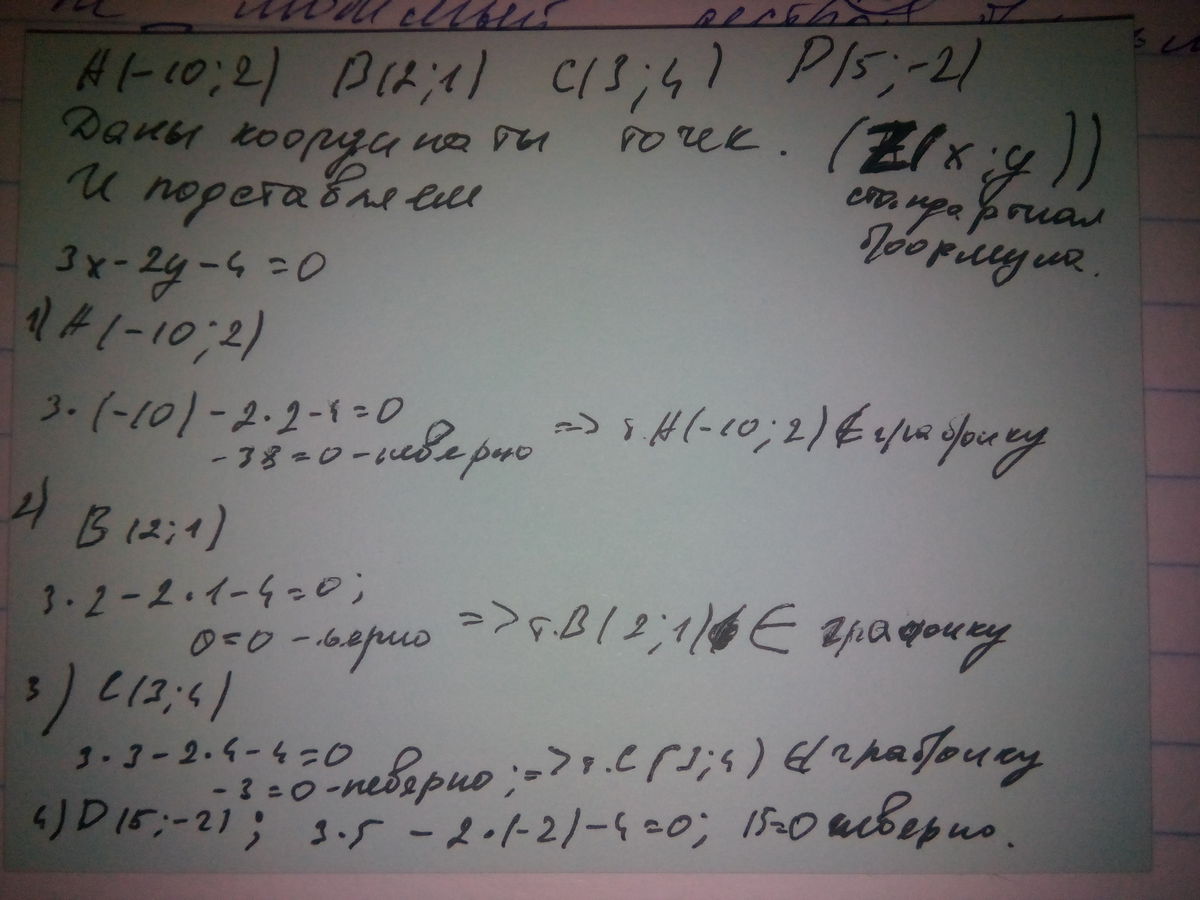 A(-10;2) B(2;1) C(3;4) D(5;-2)
Даны координаты точек. (Z(x;y))
И подставляем стандартная
формула.
3x-2y-4=0
1) A(-10;2)
3·(-10)-2·2-4=0
-38=0-неверно => т.A(-10;2) ∉ графику
2) B(2;1)
3·2-2·1-4=0;
0=0-верно => т.B(2;1) ∈ графику
3) C(3;4)
3·3-2·4-4=0
-3=0-неверно; => т.C(3;4) ∉ графику
4) D(5;-2); 3·5-2·(-2)-4=0; 15=0 неверно.